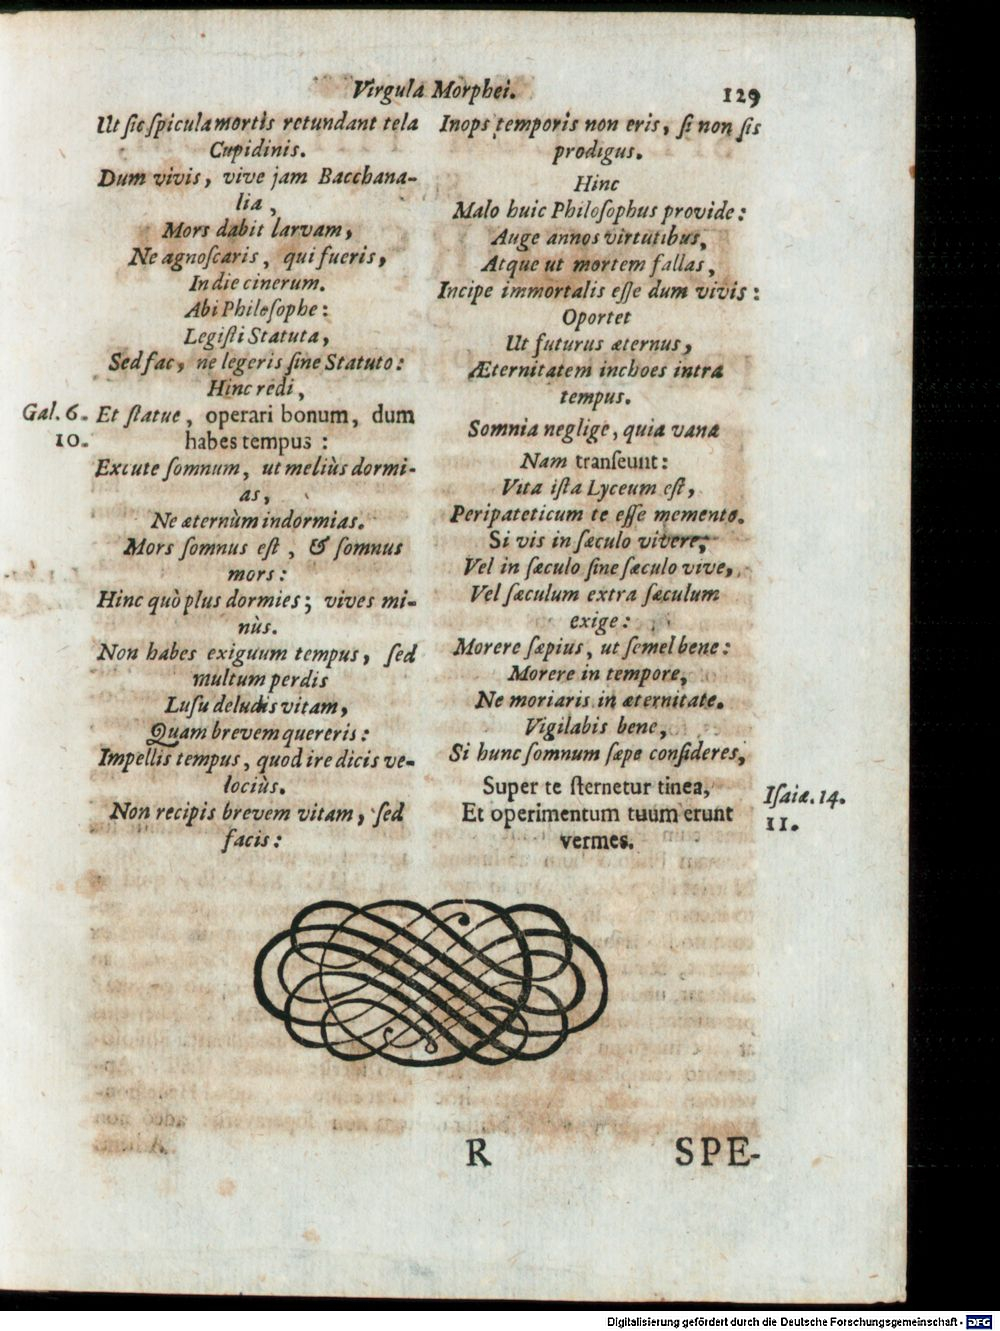 Virgula Morphei.
129
Ut ſic ſpicula mortis retundant tela
Cupidinis.
Dum vivis, vive jam Bacchana-
lia,
Mors dabit larvam,
Ne agnoſcaris, qui fueris,
In die cinerum.
Abi Philoſophe:
Legiſti Statuta,
Sed fac, ne legeris ſine Statuto:
Hinc redi,
Gal. 6.
10.
Et ſtatue, operari bonum, dum
habes tempus:
Excute ſomnum, ut meliùs dormi-
as,
Ne æternùm indormias.
Mors ſomnus eſt, & ſomnus
mors:
Hinc quò plus dormies; vives mi-
nùs.
Non habes exiguum tempus, ſed
multum perdis
Luſu deludis vitam,
Quam brevem quereris:
Impellis tempus, quod ire dicis ve-
lociùs.
Non recipis brevem vitam, ſed
facis:
Inops temporis non eris, ſi non ſis
prodigus.
Hinc
Malo huic Philoſophus provide:
Auge annos virtutibus,
Atque ut mortem fallas,
Incipe immortalis eſſe dum vivis:
Oportet
Ut futurus æternus,
Æternitatem inchoes intra
tempus.
Somnia neglige, quia vana
Nam tranſeunt:
Vita iſta Lyceum eſt,
Peripateticum te eſſe memento.
Si vis in ſæculo vivere,
Vel in ſæculo ſine ſæculo vive,
Vel ſæculum extra ſæculum
exige:
Morere ſæpius, ut ſemel bene:
Morere in tempore,
Ne moriaris in æternitate.
Vigilabis bene,
Si hunc ſomnum ſæpe conſideres,
Super te ſternetur tinea,
Et operimentum tuum erunt
vermes.
Iſaiæ. 14.
11.
R
SPE-
Digitalisierung gefördert durch die Deutsche Forschungsgemeinschaft - DFG